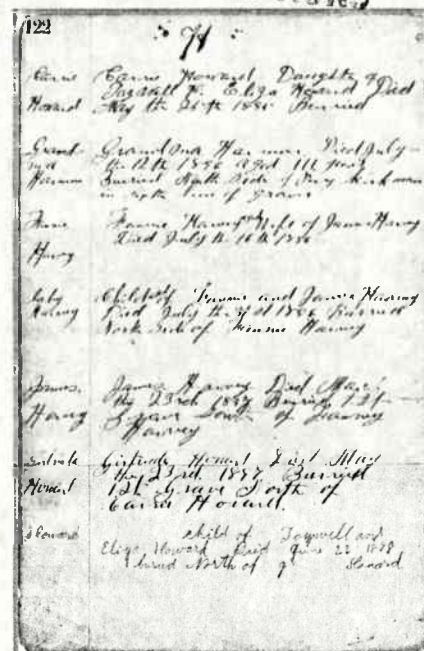 122
H
Carrie Carrie Howard, Daughter of
Tazwell & Eliza Howard Died
Howard May the 1886 Burried
Grand Grandma Harmon, Died July
ma the 12th 1886 aged 111 years
Harmon Burried North Side of Kirkman
in line of graves
Fannie Harvey Wife of James Harvey
Died July the 16th 1886
Harvey
Baby Child of Fannie and James Harvey
Harvey Died July the 1886 Burried
North Side of Fannie Harvey
James James Harvey Died Mar
the 23rd 1887 Burried 1st
Harvey Grave South of Fannie
Harvey
Gertrude Gertrude Howard Died May
the 23rd 1887 Burried
Howard 1st Grave North of
Carrie Howard
Howard child of Tazwell and
Eliza Howard Died June 22 1888
buried North of Howard